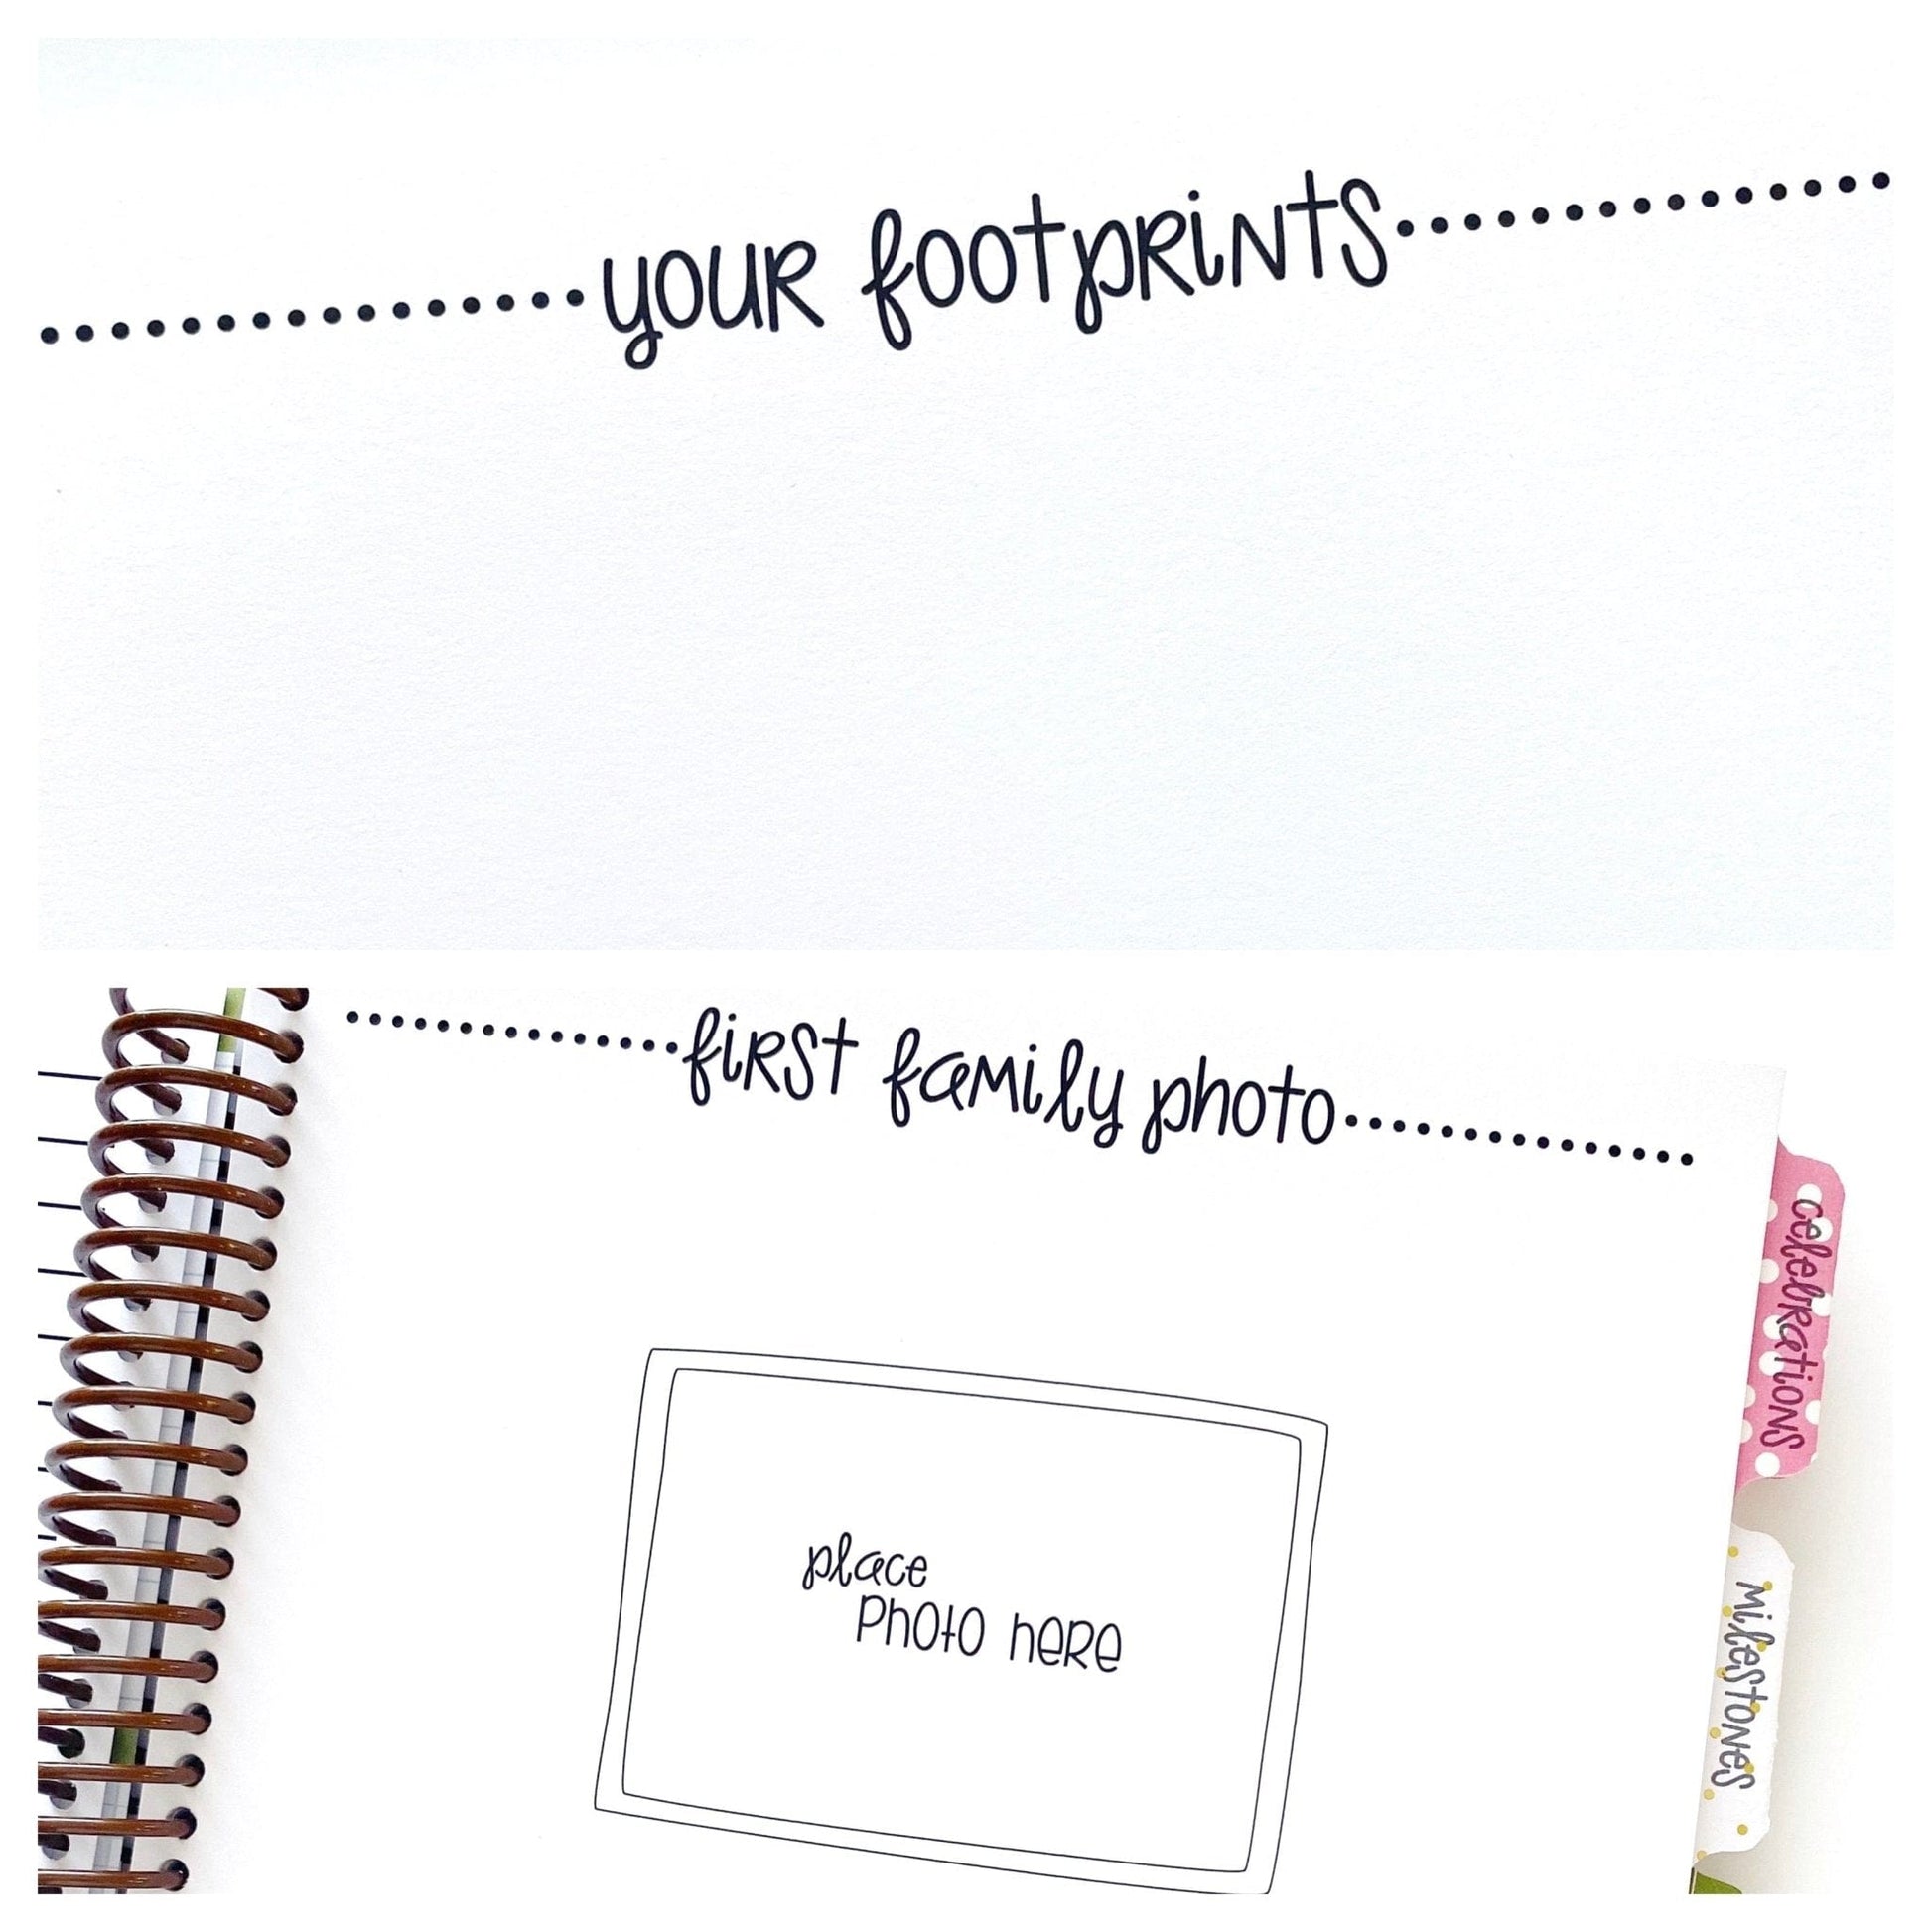 your footprints
first family photo
celebrations
place
photo here
milestones